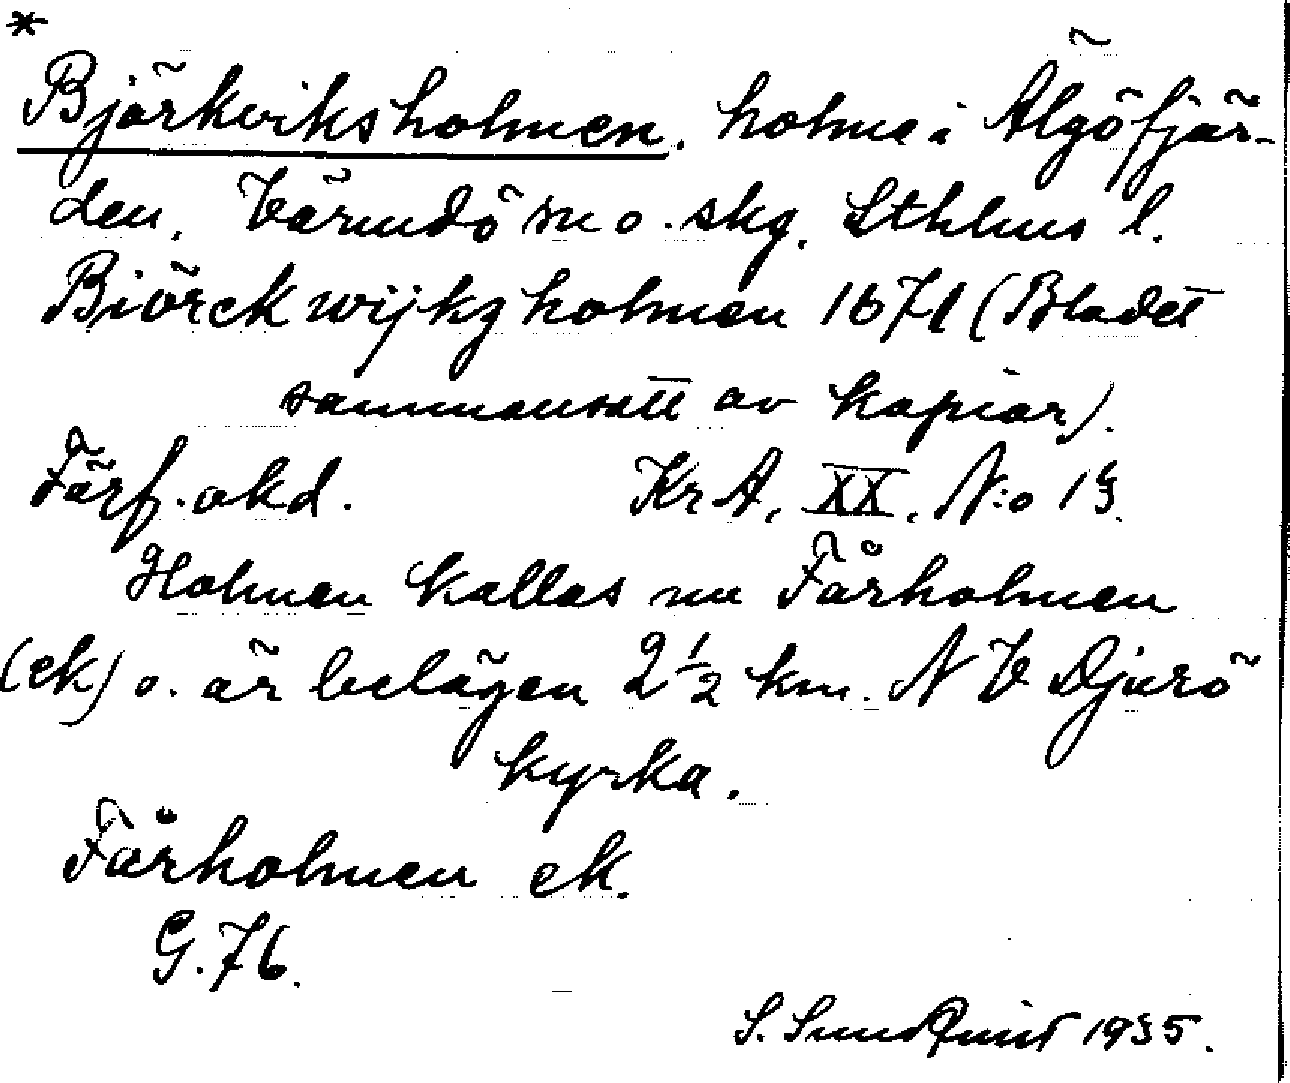 *
Björkviksholmen, holme i Älgöfjär-
den, Värmdö sn o. skg. Sthlms l.
Biörckwijkzholmen 1671 (Bladet
sammansatt av kopior).
Förf. okd. KrA, XX, N:o 13.
Holmen kallas nu Fårholmen
(ek) o. är belägen 2 1/2 km. NV Djurö
kyrka.
Fårholmen ek.
G. 76.
S. Sundquist 1935.